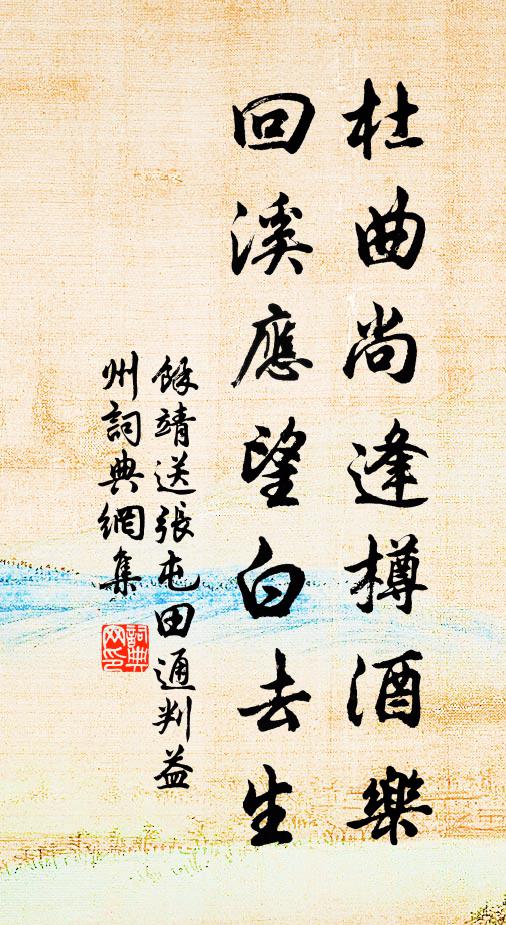 杜曲尚逢樽酒樂
回溪應望白去生
餘靖送張屯田通判益
州詞典網集
詞典
网印